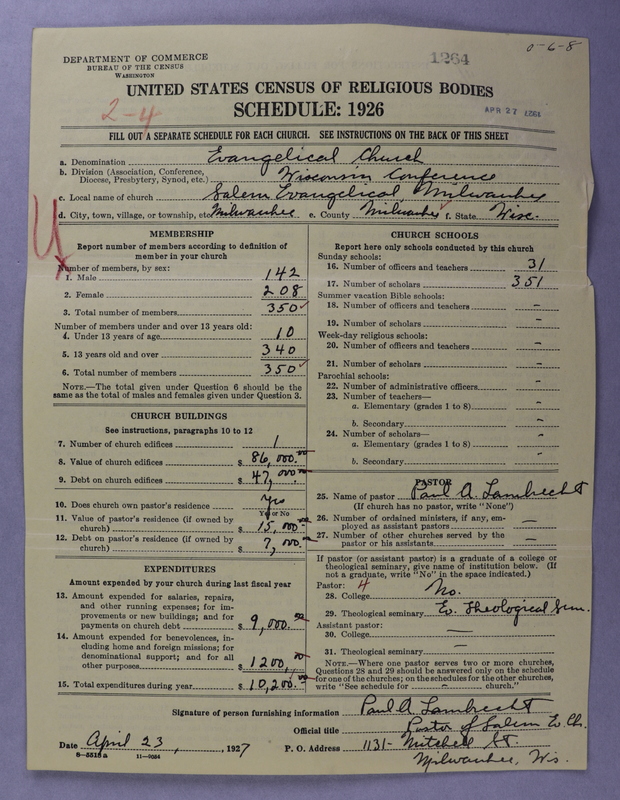 0-6-8
DEPARTMENT OF COMMERCE
BUREAU OF THE CENSUS
WASHINGTON
1264
UNITED STATES CENSUS OF RELIGIOUS BODIES
2-4
SCHEDULE: 1926
APR 27
FILL OUT A SEPARATE SCHEDULE FOR EACH CHURCH. SEE INSTRUCTIONS ON THE BACK OF THIS SHEET
a. Denomination Evangelical Church
b. Division (Association, Conference, Diocese, Presbytery, Synod, etc.) Wisconsin Conference
c. Local name of church Salem Evangelical Milwaukee
d. City, town, village, or township, etc. Milwaukee e. County Milwaukee f. State Wisc.
MEMBERSHIP
Report number of members according to definition of
member in your church
Number of members, by sex:
1. Male 142
2. Female 208
3. Total number of members 350✓
Number of members under and over 13 years old:
4. Under 13 years of age 10
5. 13 years old and over 340
6. Total number of members 350✓
NOTE.—The total given under Question 6 should be
same as the total of males and females given under Question 3.
CHURCH BUILDINGS
See instructions, paragraphs 10 to 12
7. Number of church edifices 1
8. Value of church edifices $ 86,000.00
9. Debt on church edifices $ 47,000.00
10. Does church own pastor's residence Yes
Yes or No
11. Value of pastor's residence (if owned by
church) $ 15,000.00
12. Debt on pastor's residence (if owned by
church) $ 7,000.00
EXPENDITURES
Amount expended by your church during last fiscal year
13. Amount expended for salaries, repairs,
and other running expenses; for im-
provements or new buildings; and for
payments on church debt $ 9,000.00
14. Amount expended for benevolences, in-
cluding home and foreign missions; for
denominational support; and for all
other purposes 1200.00
15. Total expenditures during year $ 10,200.00
CHURCH SCHOOLS
Report here only schools conducted by this church
Sunday schools:
16. Number of officers and teachers 31
17. Number of scholars 351
Summer vacation Bible schools:
18. Number of officers and teachers –
19. Number of scholars –
Week-day religious schools:
20. Number of officers and teachers –
21. Number of scholars –
Parochial schools:
22. Number of administrative officers –
23. Number of teachers—
a. Elementary (grades 1 to 8) –
b. Secondary –
24. Number of scholars—
a. Elementary (grades 1 to 8) –
b. Secondary –
PASTOR
25. Name of pastor Paul A. Lambrecht
(If church has no pastor, write "None")
26. Number of ordained ministers, if any, em-
ployed as assistant pastors —
27. Number of other churches served by the
pastor or his assistants —
If pastor (or assistant pastor) is a graduate of a college or
theological seminary, give name of institution below. (If
not a graduate, write "No" in the space indicated.)
Pastor: 4
28. College No.
29. Theological seminary Ev. Theological Sem.
Assistant pastor:
30. College —
31. Theological seminary —
NOTE.—Where one pastor serves two or more churches,
Questions 28 and 29 should be answered only on the schedule
for one of the churches; on the schedules for the other churches,
write "See schedule for – church."
Signature of person furnishing information Paul A. Lambrecht
Official title Pastor of Salem Ev. Ch.
Date April 23, 1927 P. O. Address 1131- Mitchell St.
8-5515 a 11-9084 Milwaukee, Wis.